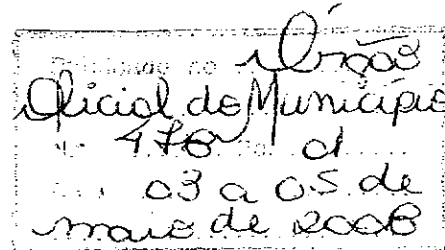 Publicado no Órgão
Oficial do Município
Nº 476 de
03 a 05 de
maio de 2006